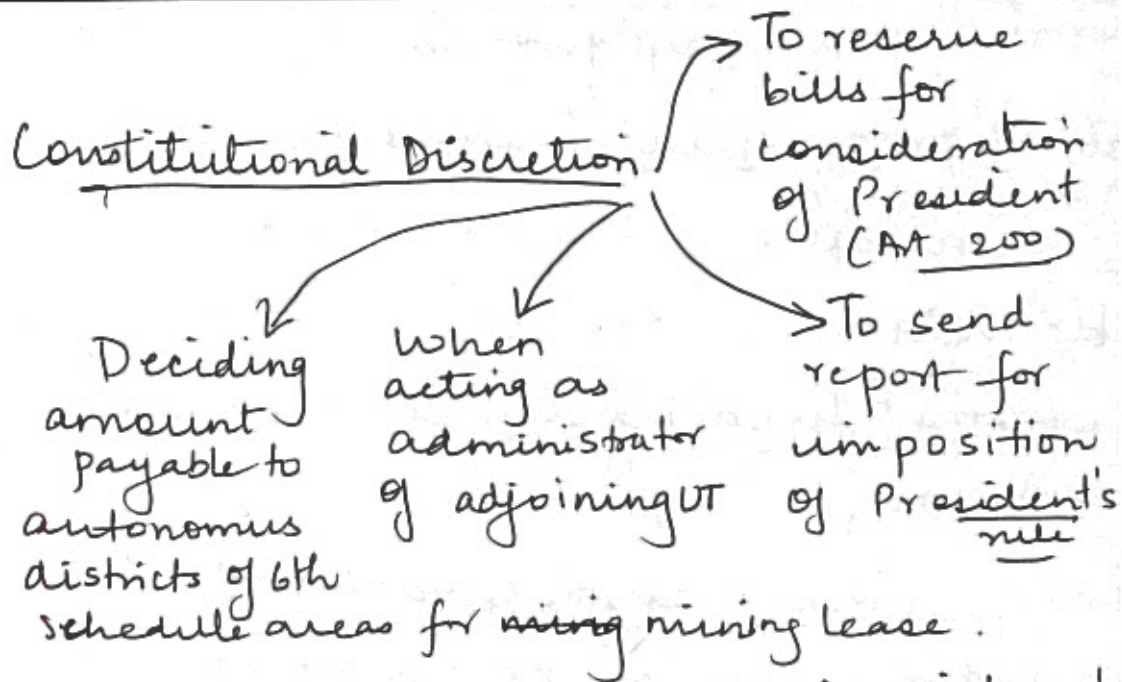 Constitutional Discretion
To reserve
bills for
consideration
of President
(Art 200)
To send
report for
imposition
of President's
rule
When
acting as
administrator
of adjoining UT
Deciding
amount
payable to
autonomus
districts of 6th
schedule areas for mining lease.